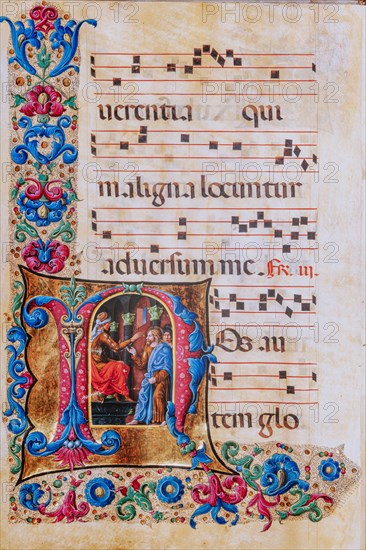 uerentia qui
maligna locuntur
aduersum me. Fr. iii
NOs au
tem glo